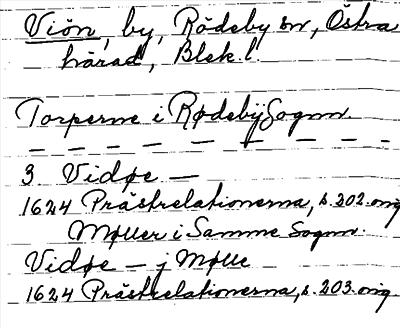 Viön, by, Rödeby sn, Östra
härad, Blek l.
Torperne i Rødebÿ Sognn.
— — — — — — — — —
3 Vidøe —
1624 Prästrelationerna, s. 202. orig
Møller i Samme Sognn.
Vidøe — j Mølle
1624 Prästrelationerna, s. 203. orig